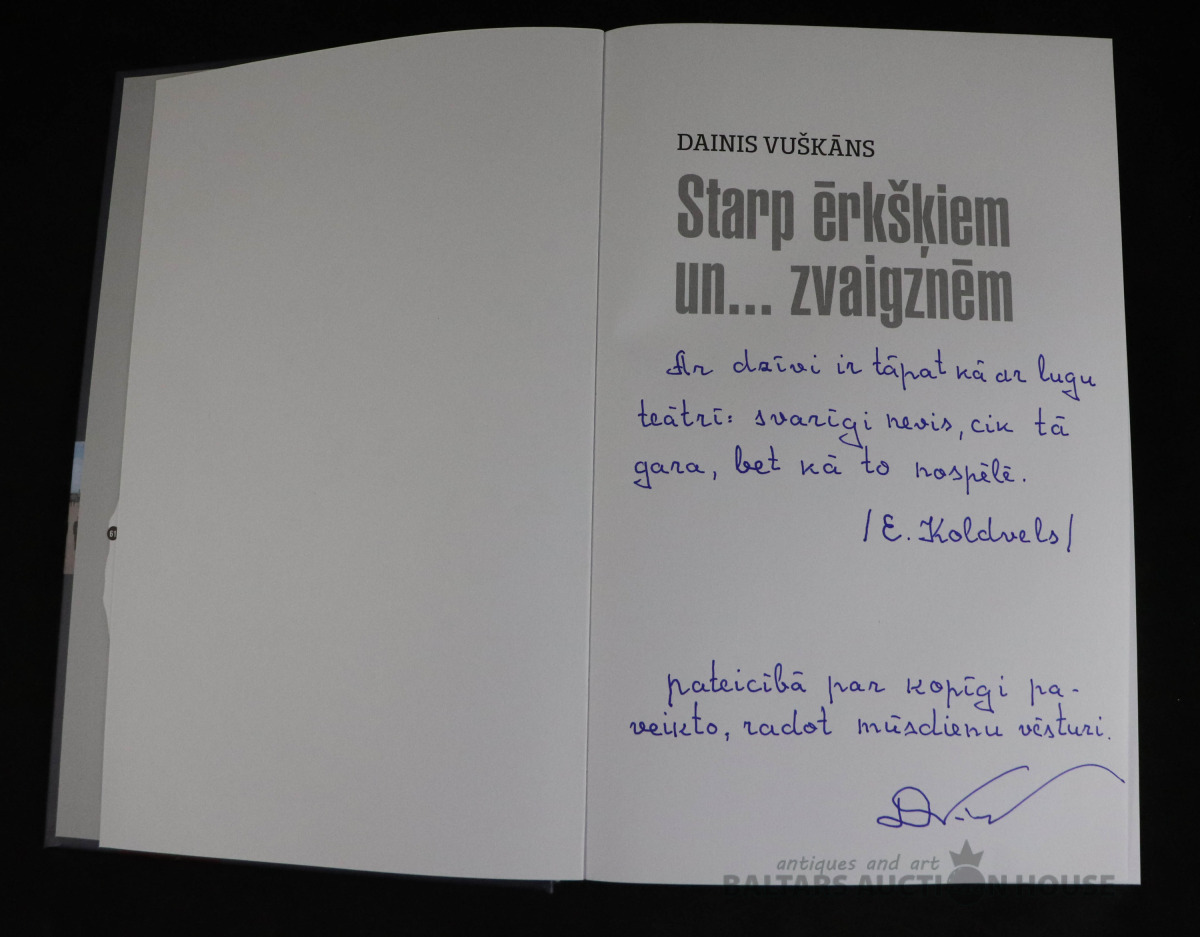 DAINIS VUŠKĀNS
Starp ērkšķiem
un... zvaigznēm
Ar dzīvi ir tāpat kā ar lugu
teātrī: svarīgi nevis, cik tā
gara, bet kā to nospēlē.
/E. Koldvels/
pateicībā par kopīgi pa-
veikto, radot mūsdienu vēsturi.
antiques and art
BALTARS AUCTION HOUSE